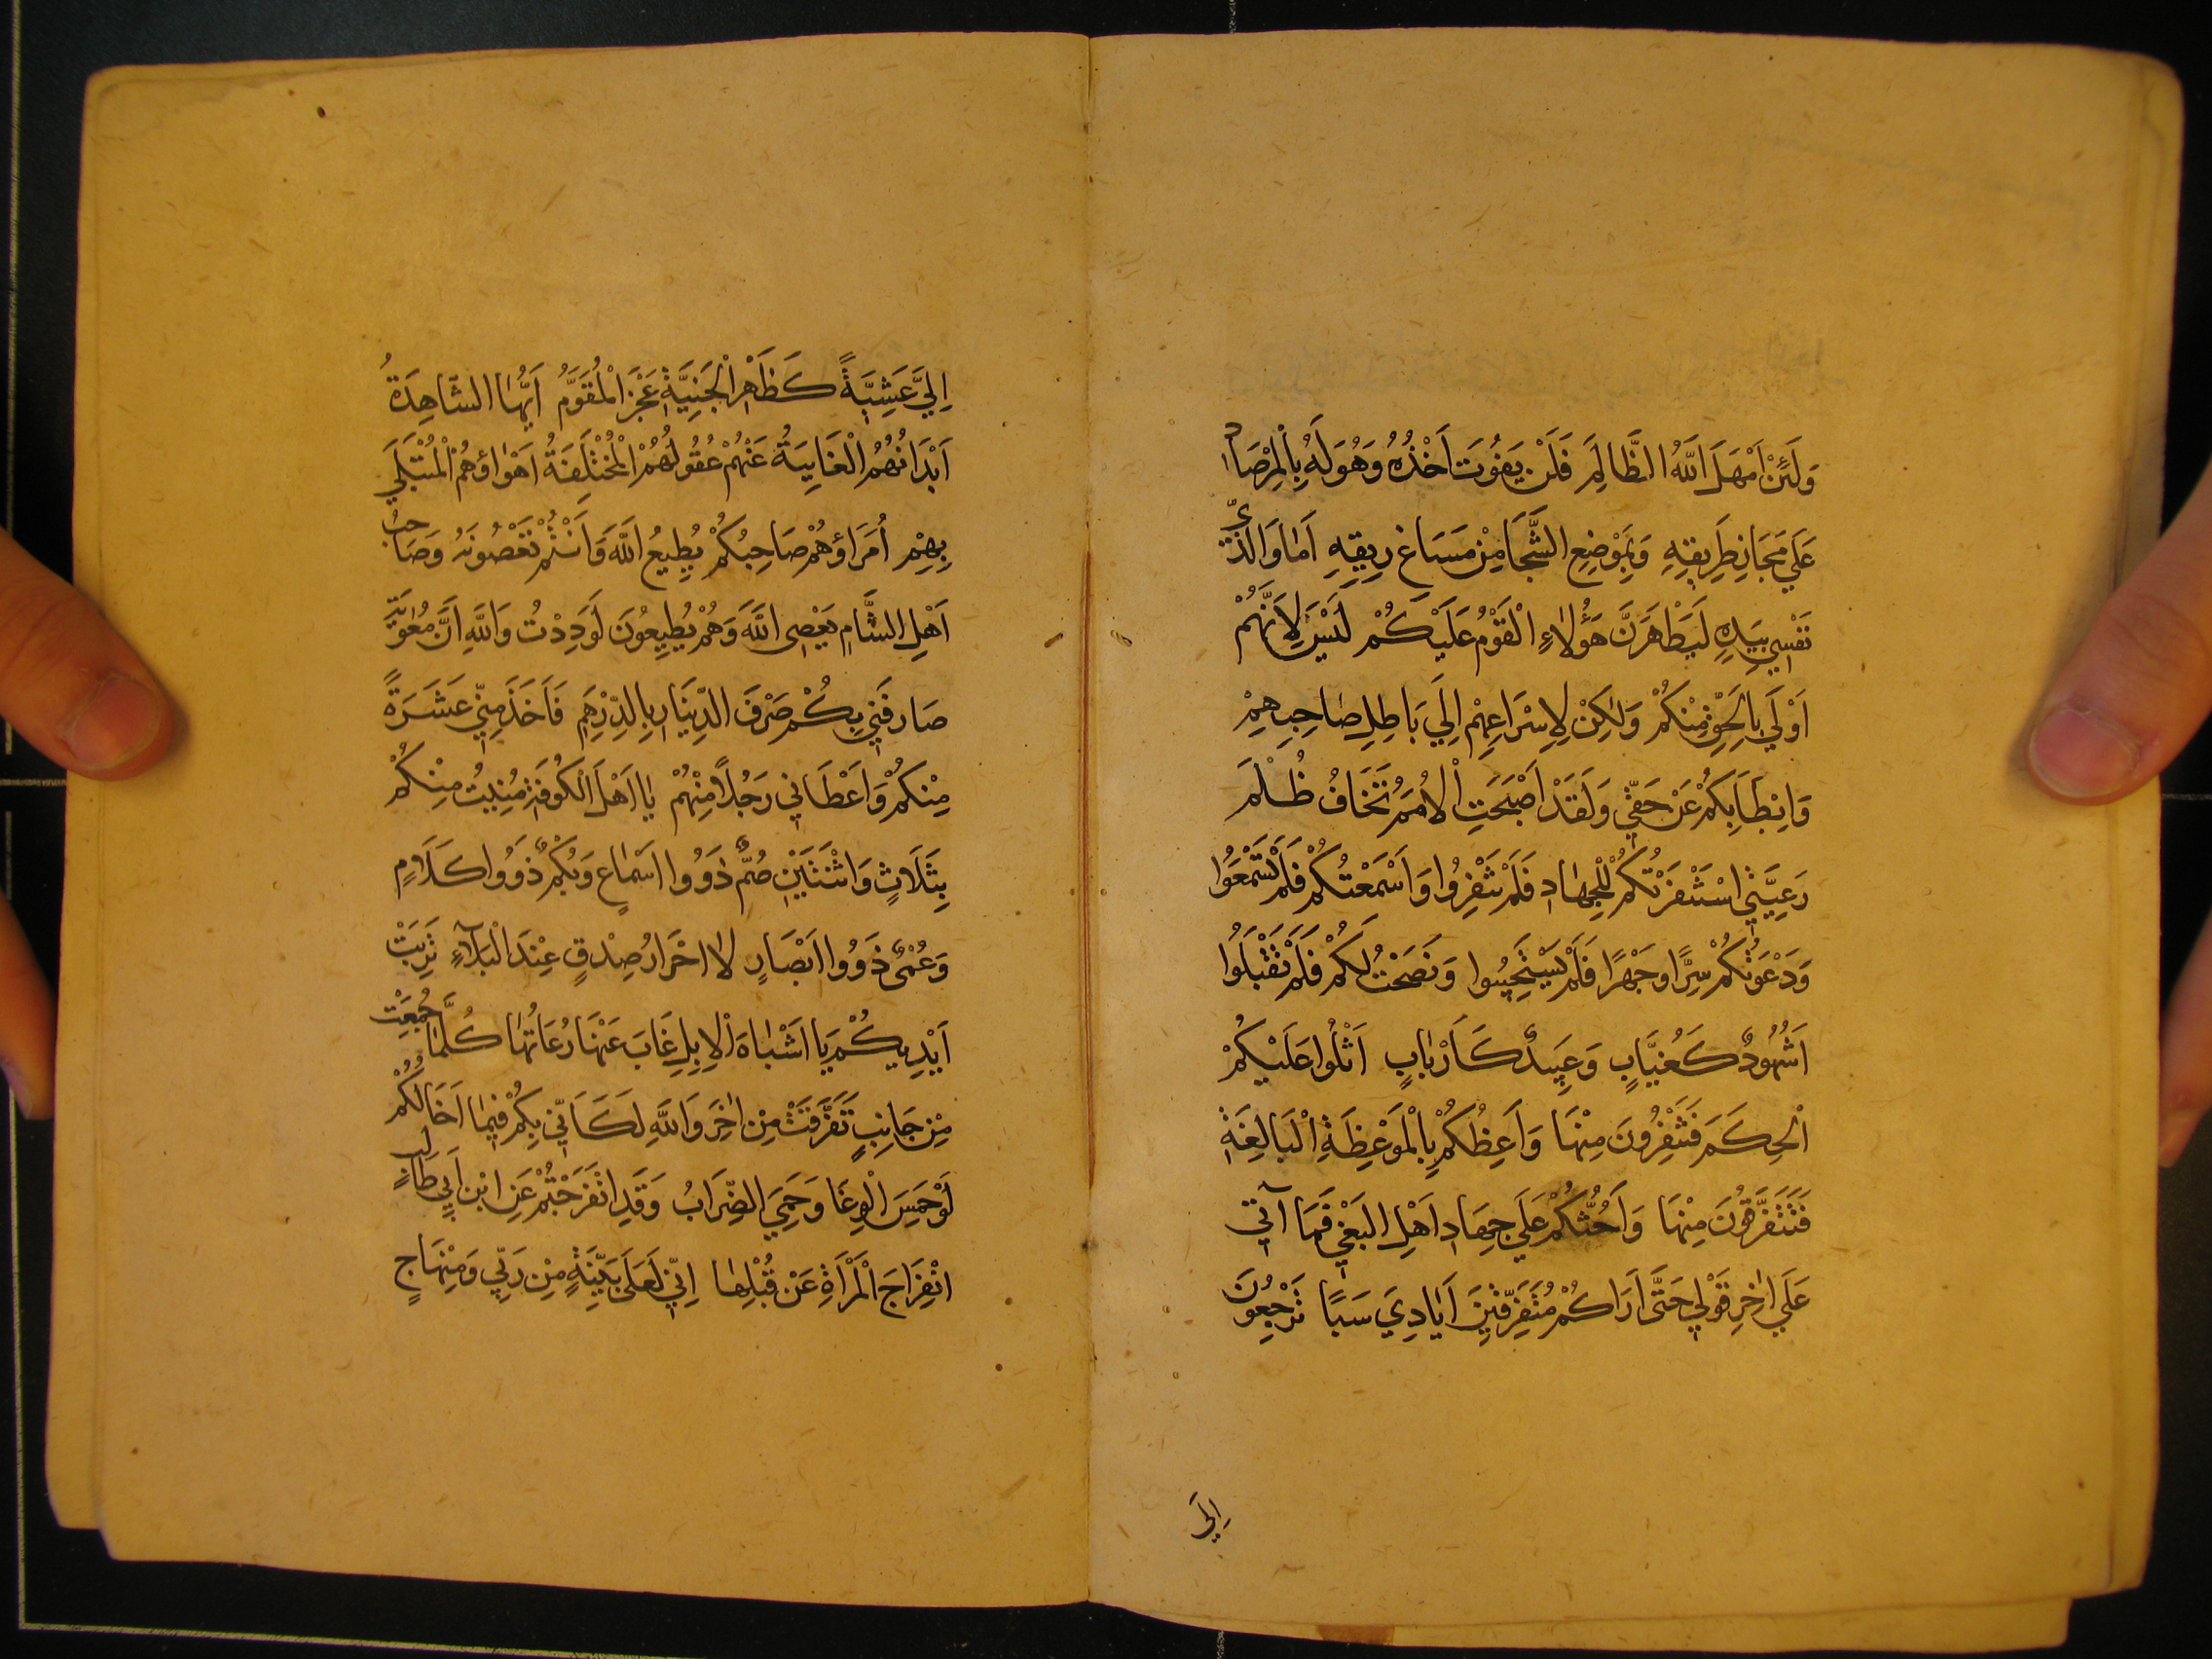 وَلَئِنْ اَمْهَلَ اللّٰهُ الظَّالِمَ فَلَنْ يَفُوْتَ اَخْذُهُ وَهُوَ لَهُ بِالْمِرْصَادِ
عَلَي مَجَازِ طَرِيقِهِ وَبِمَوْضِعِ الشَّجَا مِنْ مَسَاغِ رِيقِهِ اَمَا وَالَّذِيْ
نَفْسِي بِيَدِهِ لَيَظْهَرَنَّ هَؤُلَاءِ الْقَوْمُ عَلَيْكُمْ لَيْسَ لِاَنَّهُمْ
اَوْلَي بِالْحَقِّ مِنْكُمْ وَلٰكِنْ لِاِسْرَاعِهِمْ اِلَي بَاطِلِ صَاحِبِهِمْ
وَاِبْطَائِكُمْ عَنْ حَقِّي وَلَقَدْ اَصْبَحَتِ الْاُمَمُ تَخَافُ ظُلْمَ
رَعِيَّتِي اسْتَنْفَرْتُكُمْ لِلْجِهَادِ فَلَمْ تَنْفِرُوا وَاَسْمَعْتُكُمْ فَلَمْ تَسْمَعُوا
وَدَعَوْتُكُمْ سِرًّا وَجَهْرًا فَلَمْ تَسْتَجِيبُوا وَنَصَحْتُ لَكُمْ فَلَمْ تَقْبَلُوا
اَشُهُودٌ كَغُيَّابٍ وَعَبِيدٌ كَاَرْبَابٍ اَتْلُوا عَلَيْكُمْ
الْحِكَمَ فَتَنْفِرُونَ مِنْهَا وَاَعِظُكُمْ بِالْمَوْعِظَةِ الْبَالِغَةِ
فَتَتَفَرَّقُونَ مِنْهَا وَاَحُثُّكُمْ عَلَي جِهَادِ اَهْلِ الْبَغْيِ فَمَا آتِي
عَلَي اٰخِرِ قَوْلِي حَتَّي اَرَاكُمْ مُتَفَرِّقِينَ اَيَادِيَ سَبَا تَرْجِعُونَ
اِلَي
اِلَيَّ عَشِيَّةً كَظَهْرِ الْحَنِيَّةِ عَجَزَ الْمُقَوِّمُ اَيُّهَا الشَّاهِدَةُ
اَبْدَانُهُمُ الْغَايِبَةُ عَنْهُمْ عُقُولُهُمُ الْمُخْتَلِفَةُ اَهْوَاؤُهُمُ الْمُبْتَلَي
بِهِمْ اُمَرَاؤُهُمْ صَاحِبُكُمْ يُطِيعُ اللّٰهَ وَاَنْتُمْ تَعْصُونَهُ وَصَاحِبُ
اَهْلِ الشَّامِ يَعْصِي اللّٰهَ وَهُمْ يُطِيعُونَهُ لَوَدِدْتُ وَاللّٰهِ اَنَّ مُعٰوِيَةَ
صَارَفَنِي بِكُمْ صَرْفَ الدِّينَارِ بِالدِّرْهَمِ فَاَخَذَ مِنِّي عَشَرَةً
مِنْكُمْ وَاَعْطَانِي رَجُلًا مِنْهُمْ يَا اَهْلَ الْكُوفَةِ مُنِيتُ مِنْكُمْ
بِثَلَاثٍ وَاثْنَتَيْنِ صُمٌّ ذَوُوا اَسْمَاعٍ وَبُكْمٌ ذَوُوا كَلَامٍ
وَعُمْيٌ ذَوُوا اَبْصَارٍ لَا اَحْرَارُ صِدْقٍ عِنْدَ الْبَلَآءِ تَرِبَتْ
اَيْدِيكُمْ يَا اَشْبَاهَ الْاِبِلِ غَابَ عَنْهَا رُعَاتُهَا كُلَّمَا جُمِعَتْ
مِنْ جَانِبٍ تَفَرَّقَتْ مِنْ اٰخَرَ وَاللّٰهِ لَكَاَنِّي بِكُمْ فِيمَا اَخَالُكُمْ
لَوْ حَمِسَ الْوِغَا وَحَمِيَ الضِّرَابُ وَقَدِ انْفَرَجْتُمْ عَنِ ابْنِ اَبِي طَالِبٍ
انْفِرَاجَ الْمَرْاَةِ عَنْ قُبُلِهَا اِنِّي لَعَلَي بَيِّنَةٍ مِنْ رَبِّي وَمِنْهَاجٍ